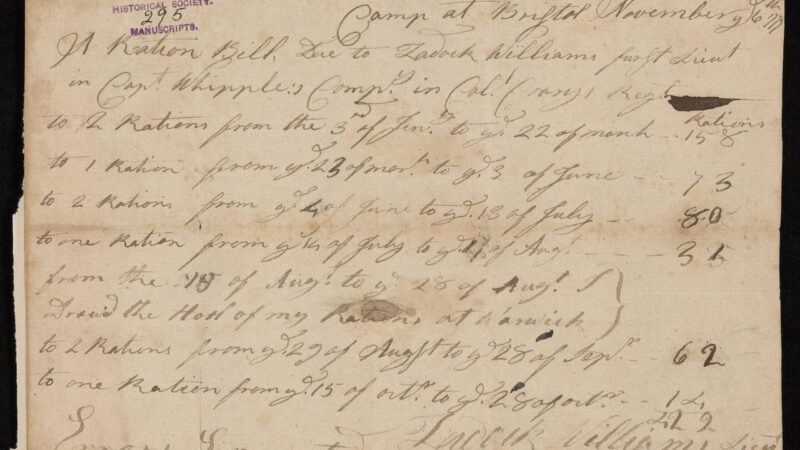 HISTORICAL SOCIETY.
295
MANUSCRIPTS.
Camp at Bristol November ye 6th
A Ration Bill Due to Zadock Williams furst Lieut
in Capt Whipple:s Compy in Col Crarys Regt
Rations
to 2 Rations from the 3d of Jenr to ye 22 of march - 158
to 1 Ration from ye 23 of mar to ye 3 of June - - 73
to 2 Rations from ye 4 of June to ye 13 of July - - 80
to one Ration from ye 14 of July to ye of Augt - - - 3
from the of Augt to ye 28 of Augt I
Draw'd the Hool of my Rations at Warwick
to 2 Rations from ye 29 of Augst to ye 28 of Sepr - - 62
to one Ration from ye 15 of octr to ye 28 of octr - - 14
Errors Zadock Williams Lieut